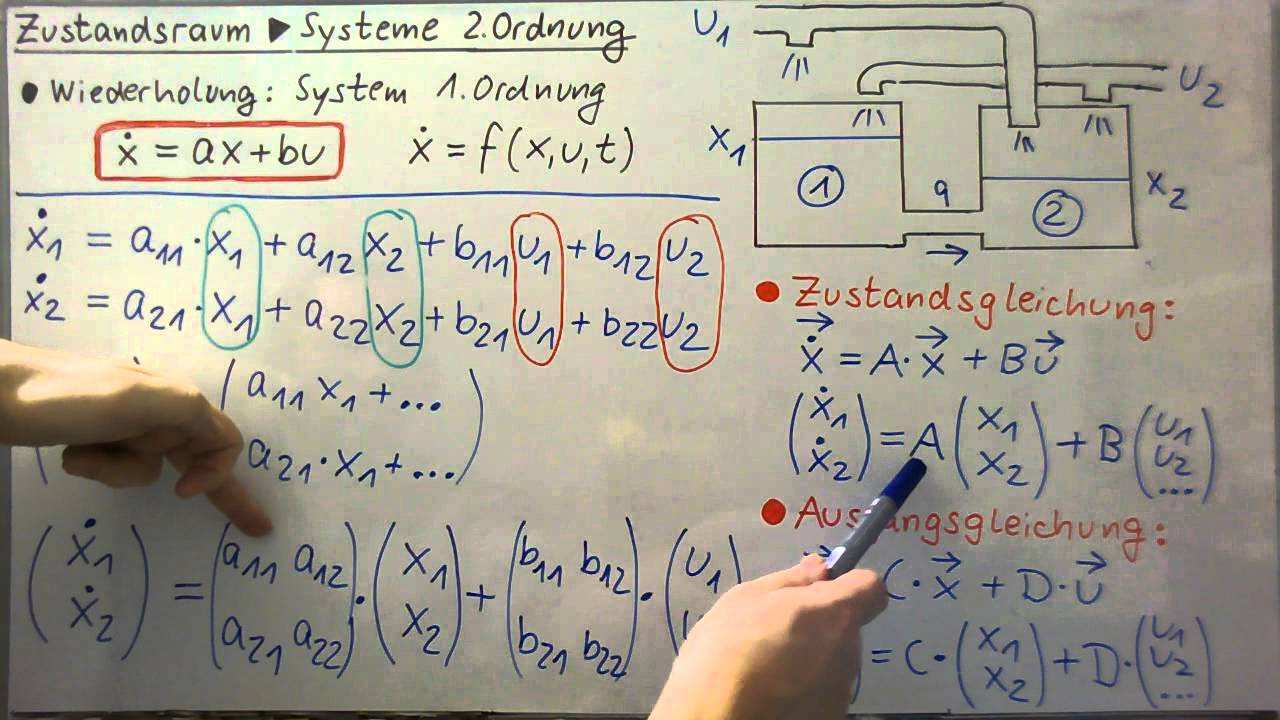 Zustandsraum ▶ Systeme 2.Ordnung
• Wiederholung: System 1.Ordnung
ẋ = ax+bu
ẋ = f(x,u,t)
ẋ₁ = a₁₁·x₁ + a₁₂x₂ + b₁₁u₁ + b₁₂u₂
ẋ₂ = a₂₁·x₁ + a₂₂x₂ + b₂₁u₁ + b₂₂u₂
( a₁₁x₁+...
a₂₁·x₁+... )
( ẋ₁ ) = ( a₁₁ a₁₂ ) · ( x₁ ) + ( b₁₁ b₁₂ ) · ( u₁ )
( ẋ₂ ) ( a₂₁ a₂₂ ) ( x₂ ) ( b₂₁ b₂₂ )
U₁
U₂
x₁
①
q
→
②
x₂
• Zustandsgleichung:
ẋ⃗ = A·x⃗ + Bu⃗
( ẋ₁ ) = A ( x₁ ) + B ( u₁ )
( ẋ₂ ) ( x₂ ) ( u₂ )
...
• gangsgleichung:
C·x⃗ + D·u⃗
= C·( x₁ ) + D·( u₁ )
( x₂ ) ( u₂ )
...